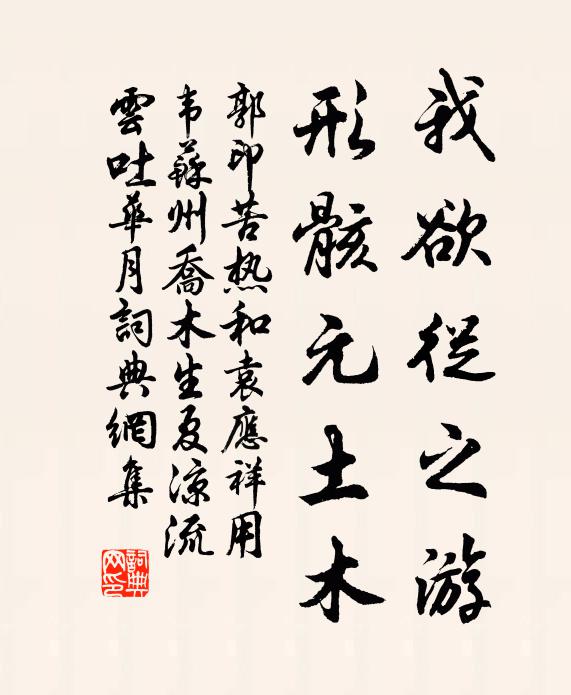 我欲從之游
形骸元土木
郭印苦热和袁應祥用
韦蘇州喬木生夏涼流
雲吐華月詞典網集
詞典网印